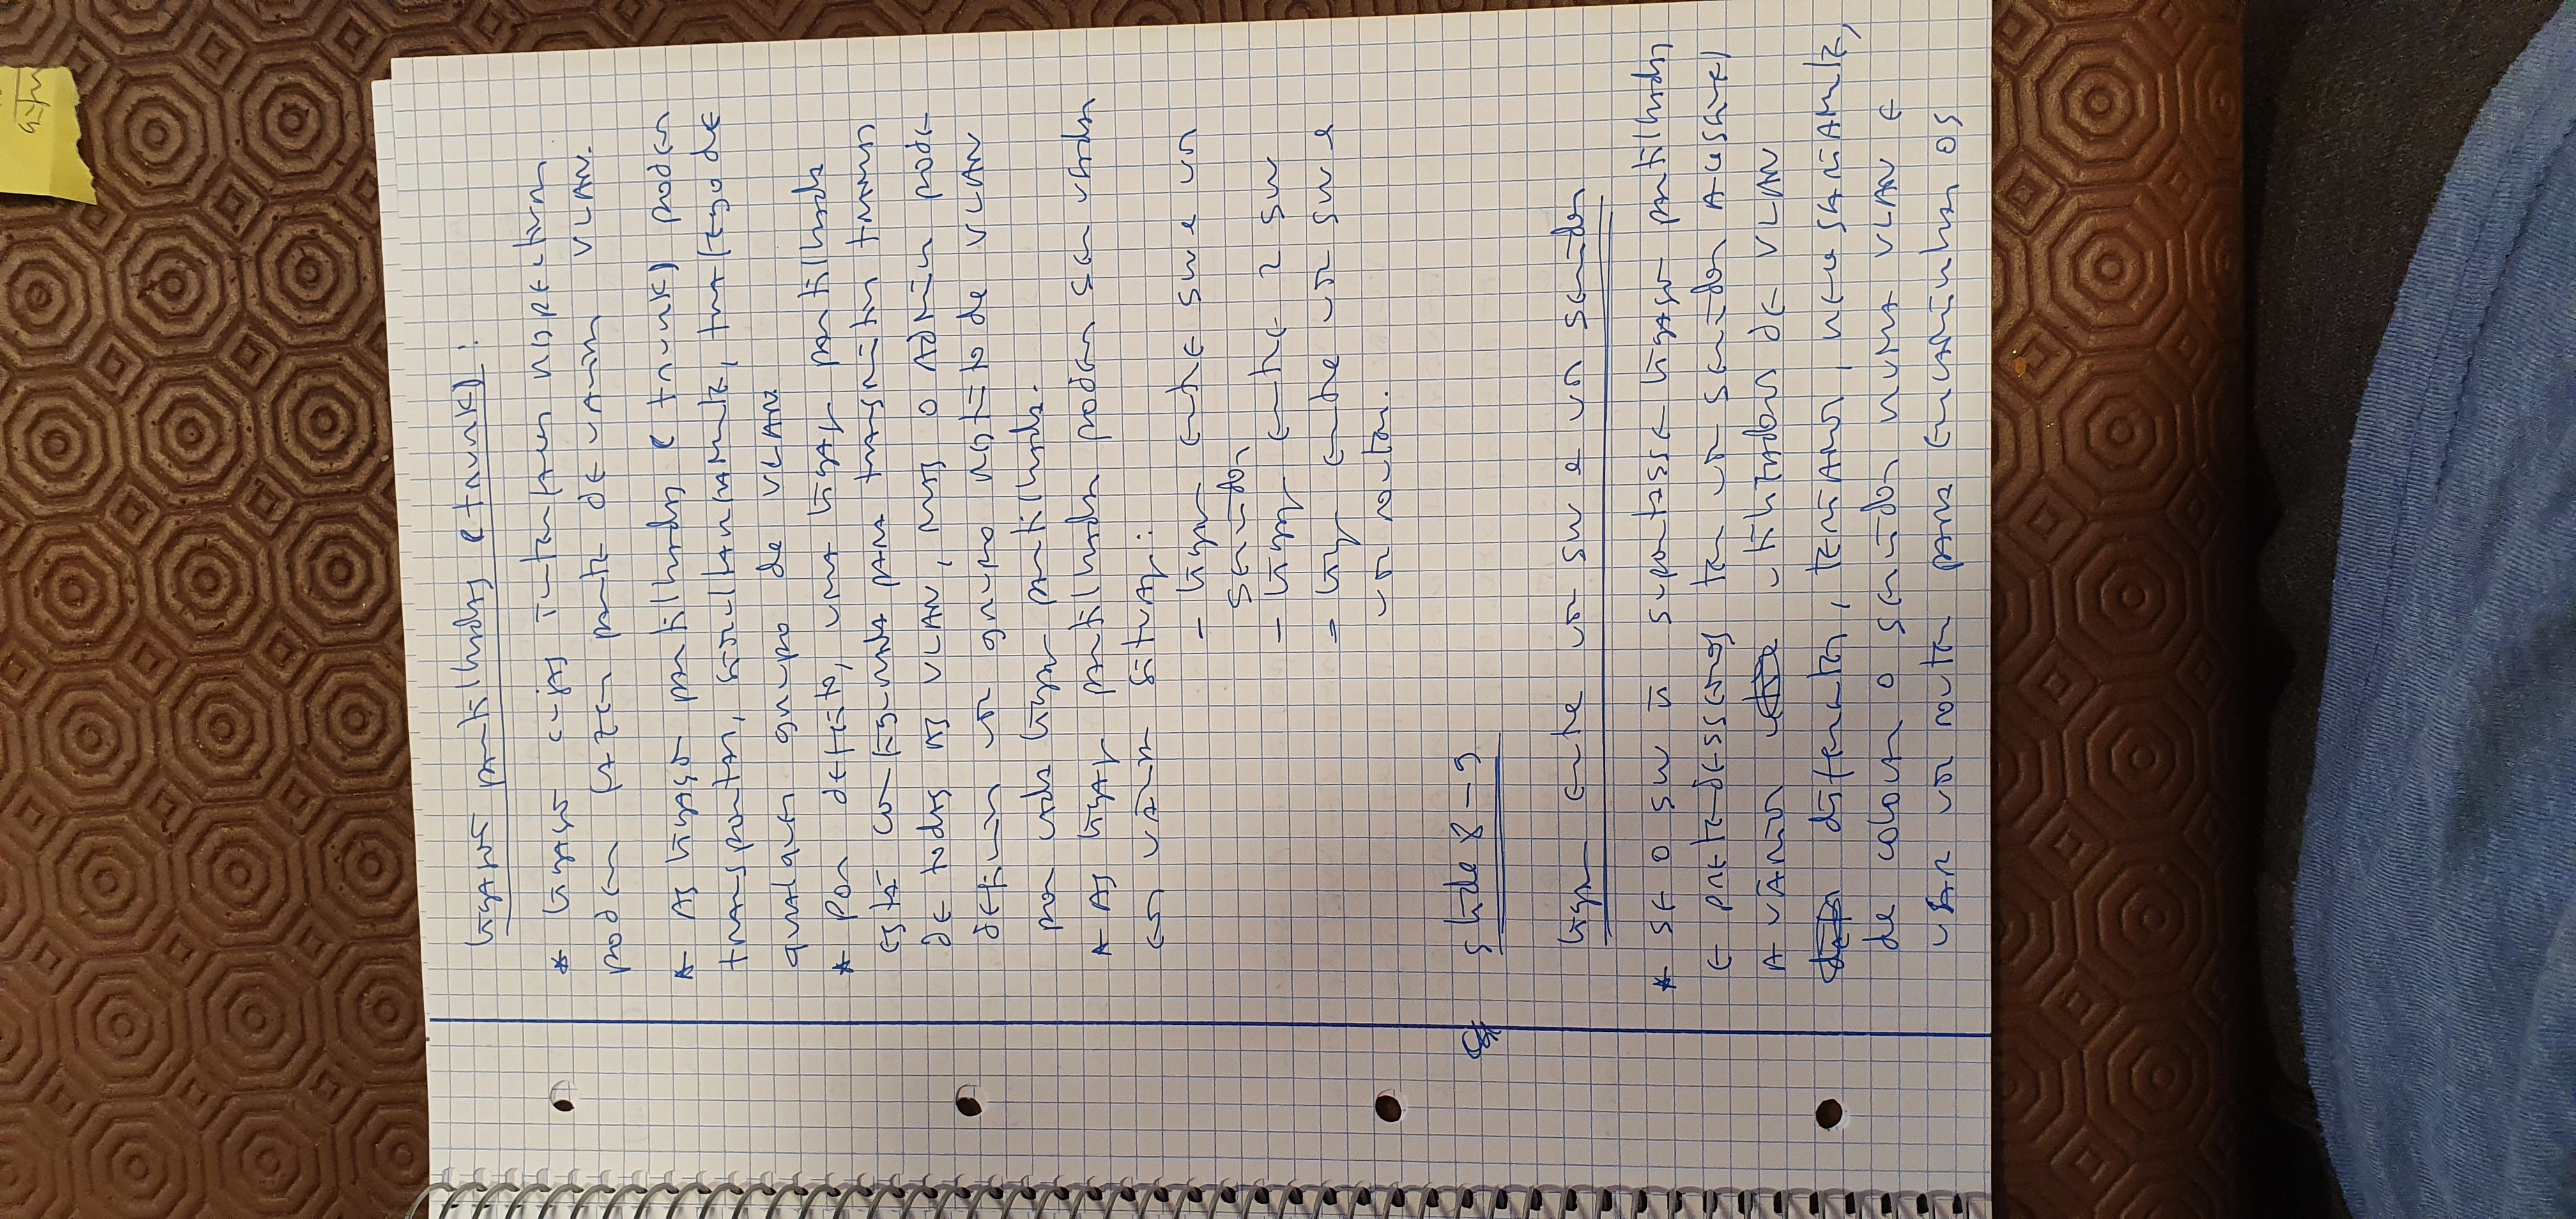 Ligações partilhadas (trunk):
* Ligações cujas interfaces respectivas
podem fazer parte de várias VLAN.
* As ligações partilhadas (trunk) podem
transportar, simultaneamente, tráfego de
qualquer grupo de VLAN.
* Por defeito, uma ligação partilhada
está configurada para transmitir tramas
de todas as VLAN, mas o Admin pode
definir um grupo restrito de VLAN
por cada ligação partilhada.
* As ligações partilhadas podem ser usadas
em várias situações:
- ligação entre sw e um
servidor
- ligação entre 2 sw
- lig entre um sw e
um router.
slide 8-9
Ligação entre um sw e um servidor
* Se o sw ñ suportasse ligações partilhadas
e pretendessemos ter um servidor acessível
a vários utilizadores de VLAN
diferentes, teríamos, necessariamente,
de colocar o servidor numa VLAN e
usar um router para encaminhar os